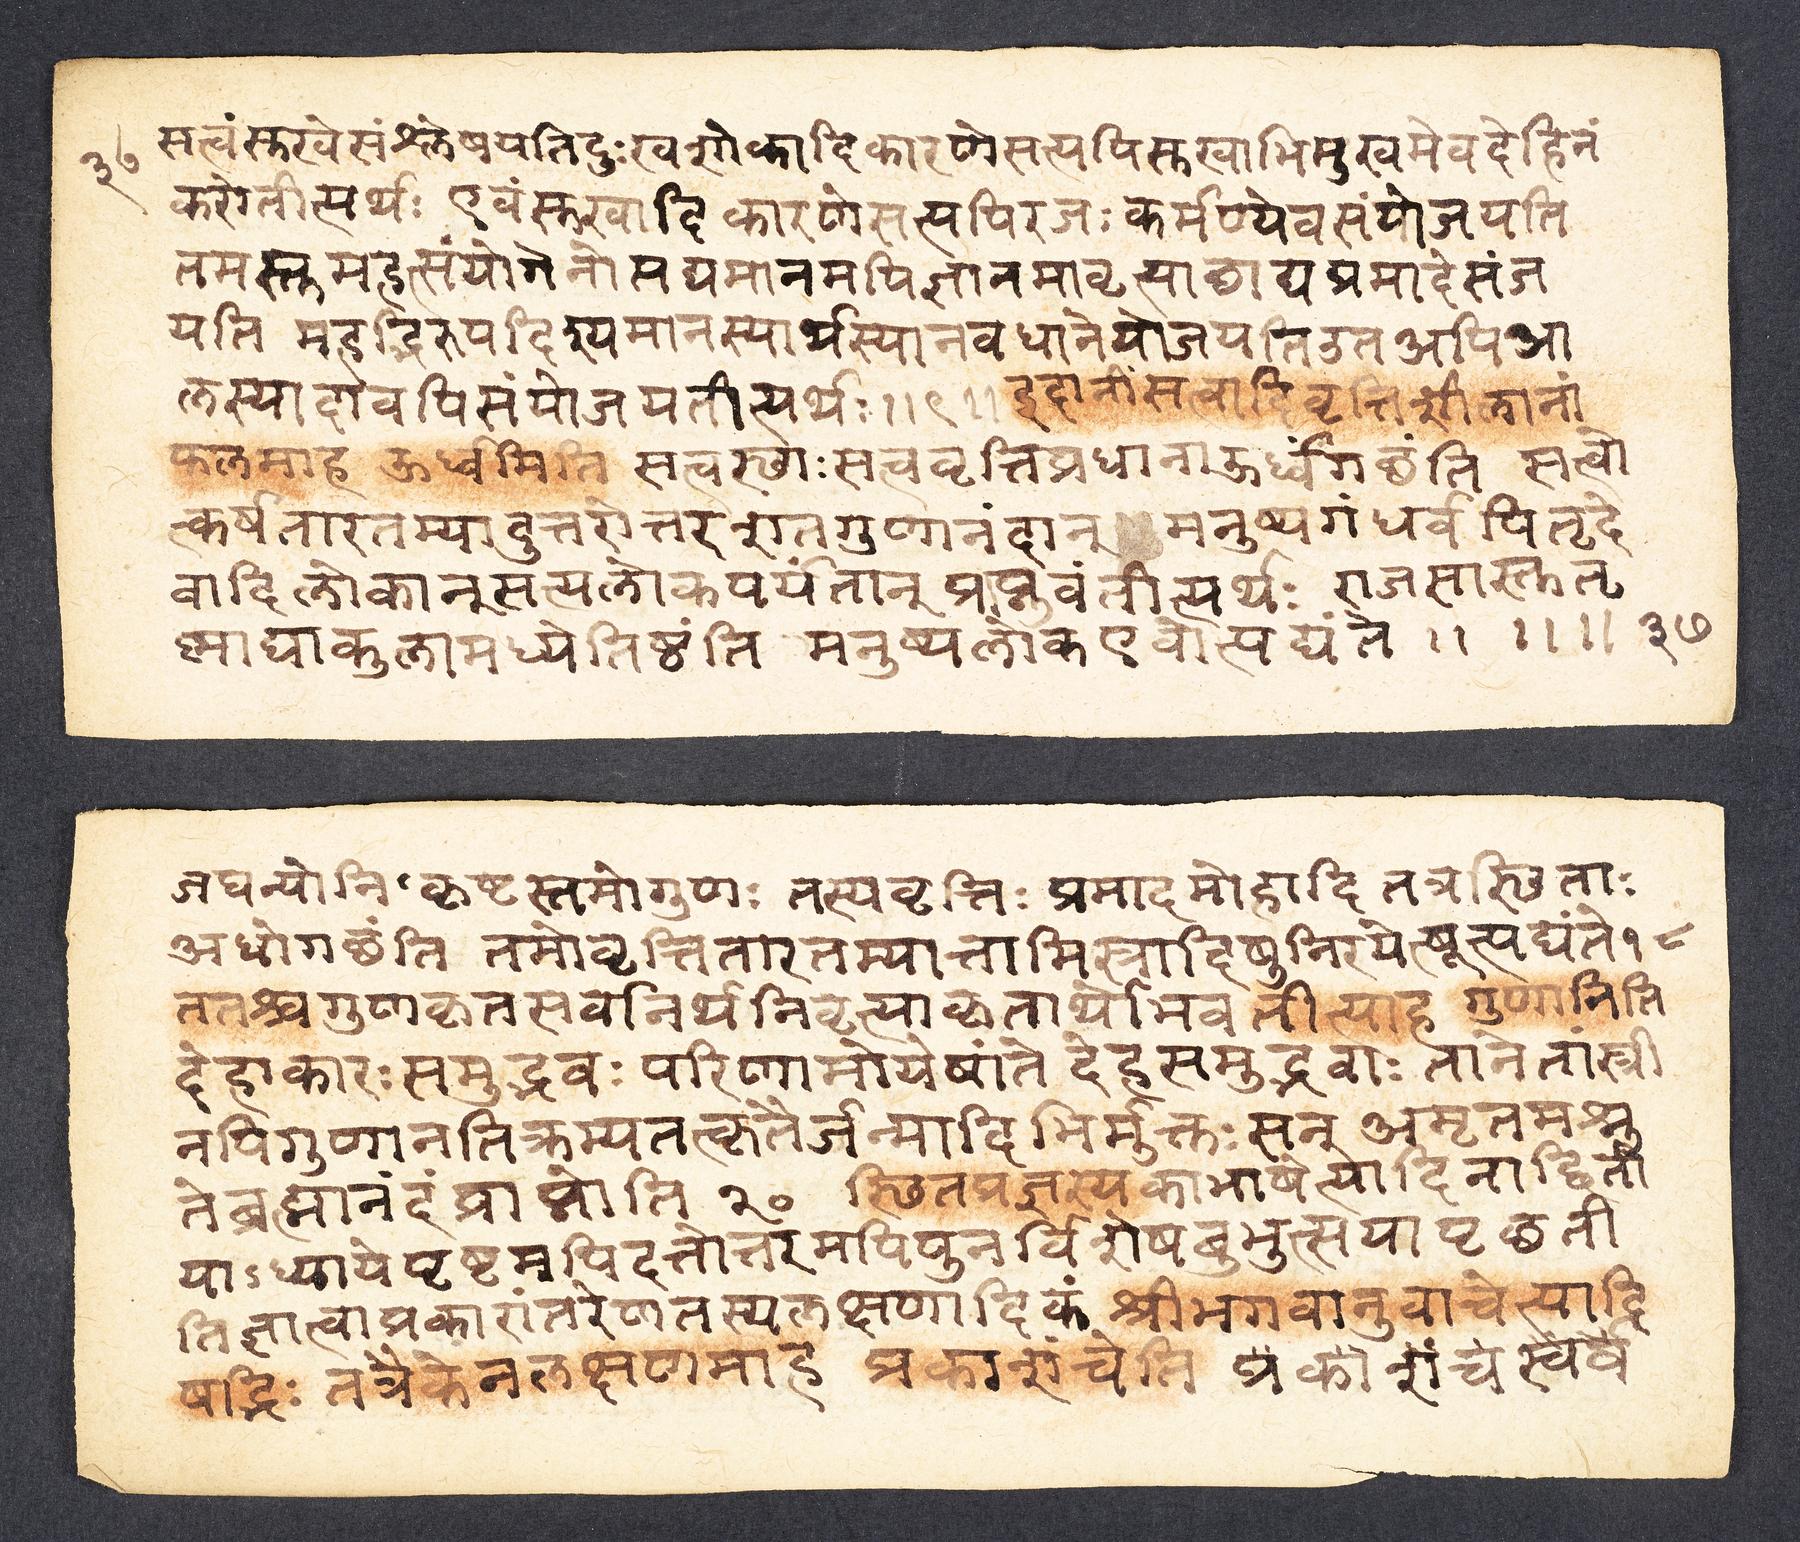 ३७ सत्वंसुखेसंश्लेषयतिदुःखशोकादिकारणेसत्यपिसुखाभिमुखमेवदेहिनं
करोतीत्यर्थः एवंसुखादिकारणेसत्यपिरजःकर्मण्येवसंयोजयति
तमस्तुमहत्संयोगेनोत्पद्यमानमपिज्ञानमावृत्याछाद्यप्रमादेसंज
यति महद्भिरुपदिश्यमानस्यार्थस्यानवधानेयोजयतिउतअपिआ
लस्यादावपिसंयोजयतीत्यर्थः॥९॥इदानींसत्वादिवृत्तिशीलानां
फलमाह ऊर्ध्वमिति सत्वस्थाःसत्ववृत्तिप्रधानाऊर्ध्वंगछंति सत्वो
त्कर्षतारतम्यादुत्तरोत्तरशतगुणानंदान् मनुष्यगंधर्वपितृदे
वादिलोकान्सत्यलोकपर्यंतान्प्राप्नुवंतीत्यर्थः राजसास्तुतृ
ष्माद्याकुलामध्येतिष्ठंति मनुष्यलोकएवोत्पद्यंते ॥ ॥॥ ३७
जघन्योनिकृष्टस्तमोगुणः तस्यवृत्तिः प्रमादमोहादि तत्रस्थिताः
अधोगछंति तमोवृत्तितारतम्यात्तामिस्त्रादिषुनिरयेत्षूत्पद्यंते१८
ततश्चगुणकृतसर्वानर्थनिवृत्याकृतार्थोभवतीत्याह गुणानिति
देहाकारःसमुद्भवःपरिणामोयेषांतेदेहसमुद्भवाः तानेतांस्त्री
नपिगुणानतिक्रम्यतत्कृतैर्जन्मादिभिर्मुक्तःसन् अमृतमश्नु
तेब्रह्मानंदंप्राप्नोति २० स्थितप्रज्ञस्यकाभाषेत्यादिनाद्विती
याऽध्यायेपृष्टमपिदत्तोत्तरमपिपुनर्विशेषबुभुत्सयापृछती
तिज्ञात्वाप्रकारांतरेणतस्यलक्षणादिकं श्रीभगवानुवाचेत्यादि
षड्भिः तत्रैकेनलक्षणमाह प्रकाशंचेति प्रकाशंचसर्व